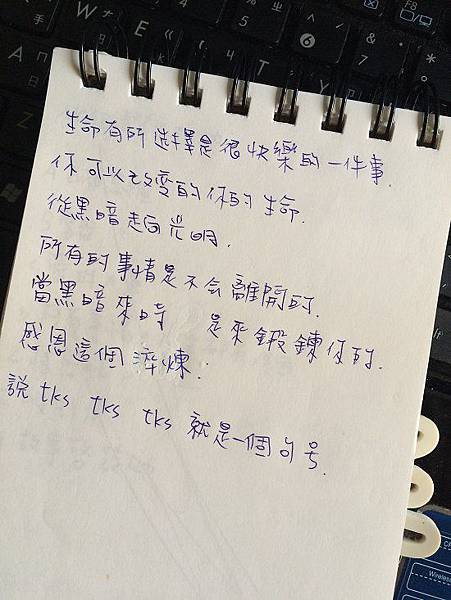 生命有所選擇是很快樂的一件事.
你可以改變的你的生命.
從黑暗走向光明.
所有的事情是不会離開的.
當黑暗來時 是來鍛鍊你的.
感恩這個淬煉.
說 tks tks tks 就是一個句号.